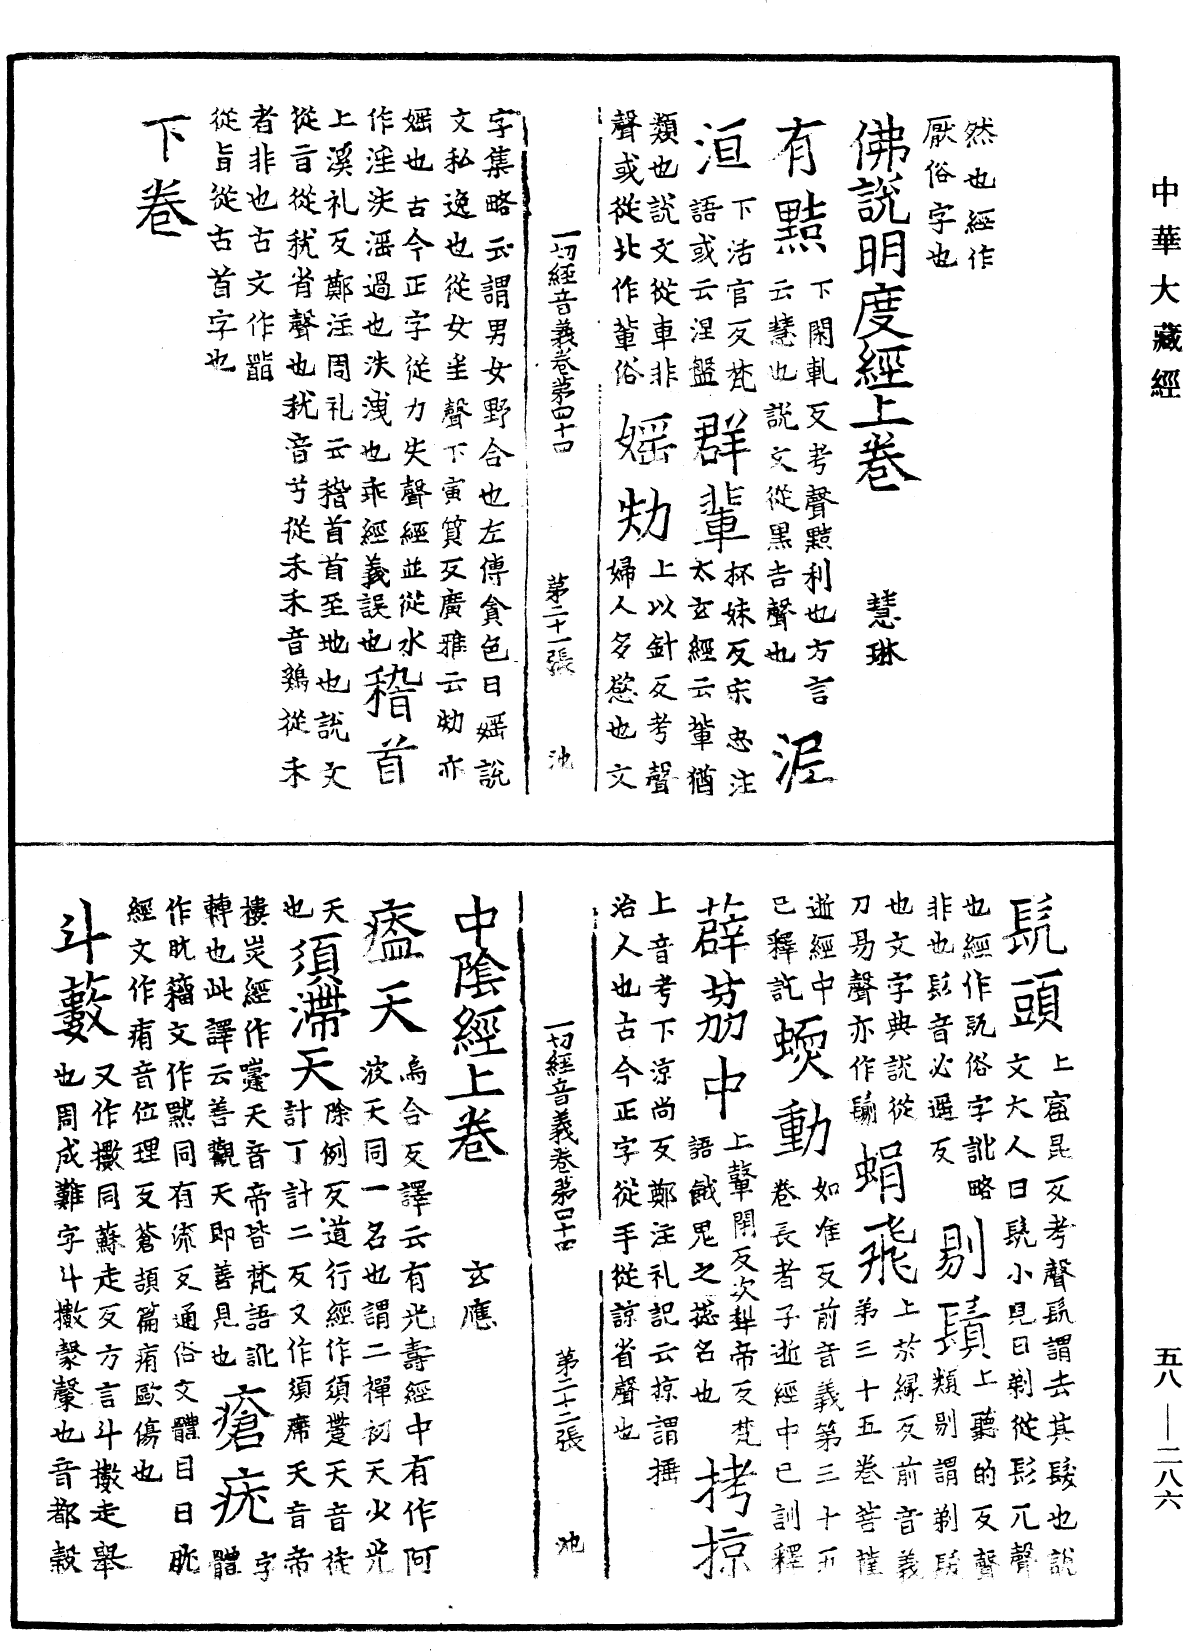 中華大藏經
然也經作
厭俗字也
佛說明度經上卷 慧琳
有黠 下閑軋反考聲黠利也方言
云慧也說文從黑吉聲也 泥
洹 下活官反梵
語或云涅盤 群輩 杯妹反宋忠注
太玄經云輩猶
類也說文從車非
聲或從北作軰俗 婬劮 上以針反考聲
婦人多慾也文
一切經音義卷第四十四 第二十一張 池
字集略云謂男女野合也左傳貪色曰婬說
文私逸也從女㸒聲下寅質反廣雅云劮亦
婬也古今正字從力失聲經並從水
作淫泆淫過也泆洩也乖經義誤也 䭫首
上溪礼反鄭注周礼云䭫首首至地也說文
從旨從𥝌省聲也𥝌音兮從禾禾音鷄從禾
者非也古文作𩒨
從旨從古首字也
下卷
髡頭 上窟昆反考聲髡謂去其髮也說
文大人曰髡小兒曰剃從髟兀聲
也經作髠俗字訛略
非也髟音必遥反 剔鬄 上聽的反聲
類剔謂剃髮
也文字典說從
刀易聲亦作鬄 蜎飛 上於緣反前音義
第三十五卷菩薩
逝經中
已釋訖 蝡動 如准反前音義第三十五
卷長者子逝經中已訓釋
薜茘中 上鼙閉反次犂帝反梵
語餓鬼之揔名也 拷掠
上音考下涼尚反鄭注礼記云掠謂捶
治人也古今正字從手從諒省聲也
一切經音義卷第四十四 第二十二張 池
中陰經上卷 玄應
㾑天 烏合反譯云有光壽經中有作阿
波天同一名也謂二禪初天火光
天
也 須滯天 除例反道行經作須㚄天音徒
計丁計二反又作須席天音帝
樓炭經作㚄天音帝皆梵語訛
轉也此譯云善觀天即善見也 瘡疣 字
體
作肬籀文作默同有流反通俗文體目曰肬
經文作痏音位理反蒼頡篇痏歐傷也
斗藪 又作擻同蘇走反方言斗擻走舉
也周成難字斗擻㲉㲉也音都穀
五八—二八六